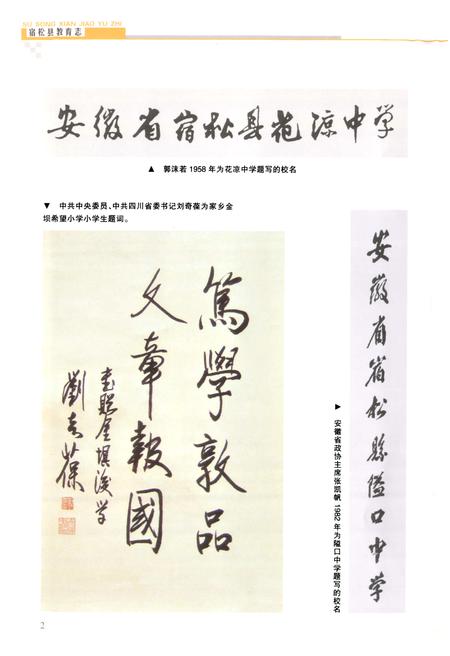 SU SONG XIAN JIAO YU ZHI
宿松县教育志
安徽省宿松县花凉中学
▲ 郭沫若 1958 年为花凉中学题写的校名
▼ 中共中央委员、中共四川省委书记刘奇葆为家乡金
坝希望小学小学生题词。
篤學敦品
文章報國
金垻
劉奇葆
安徽省宿松縣隘口中学
▶ 安徽省政协主席张凯帆 1982 年为隘口中学题写的校名
2